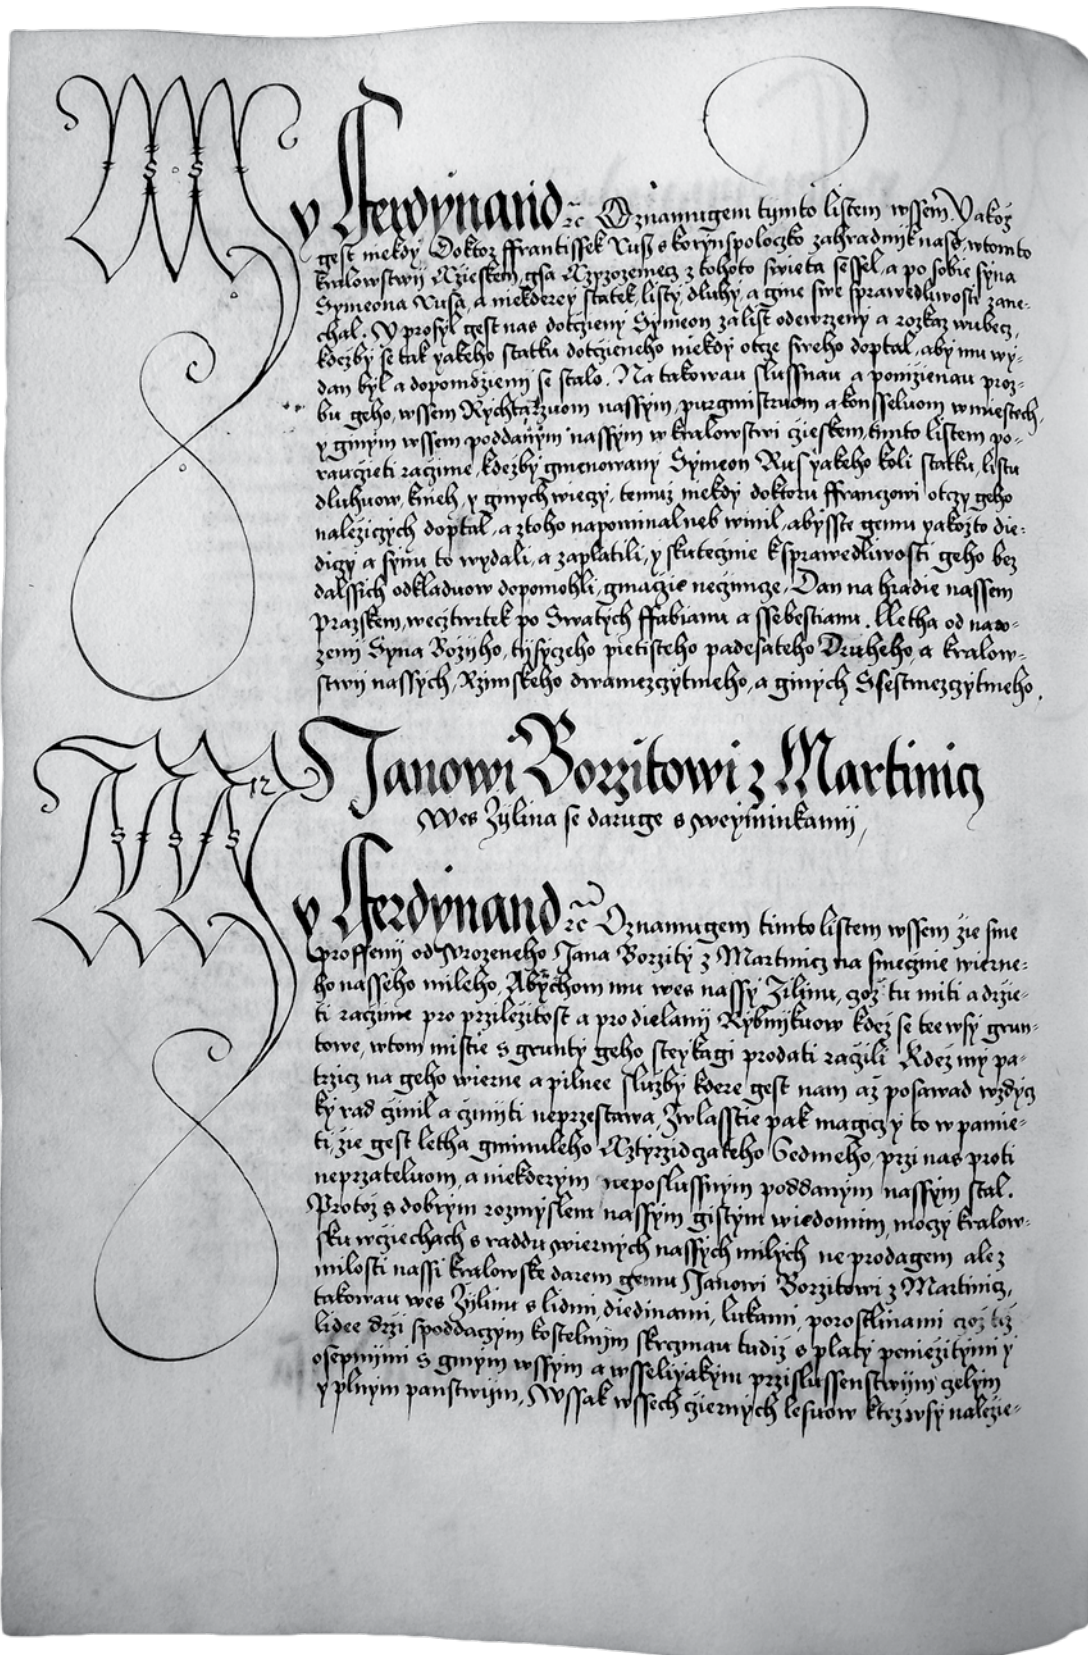 My Fferdynand ꝛc Oznamugem tymto listem wssem. Yakoz
gest niekdy Doktor Ffrantissek Russ s korynspoloczko zahradnik nass, wtomto
kralowstwij Cžieskem, gsa z tohoto swieta sessel, a po sobie syna
Symeona Rusa, a niekderey statek, listy, dluhy, a gine swe sprawedliwosti zane-
chal. Y prosyl gest nas dotczieny Symeon za list odewrzeny a rozkaz wubecz,
kdezby se tak yakeho statku dotczieneho niekdy otcze sweho doptal, aby mu wy-
dan byl a dopomozieni se stalo. Na takowau slussnau a ponizienau proz-
bu geho, wssem Rychtarzuom nassym, purgmistruom a konsseluom w miestech,
y ginym wssem poddanym nassym w kralowstwi czieskem, timto listem po-
rauczieti raczime, kdezby gmenowany Symeon Rus yakeho koli statku, listu
dluhuow, knieh, y ginych wieczy, temuz niekdy doktoru ffranczowi otczy geho
nalezicych doptal, a ztoho napominal neb winil, abysste gemu yakozto die-
diczy a synu to wydali, a zaplatili, y skutecznie k sprawedliwosti geho bez
dalssich odkladuow dopomohli, gmaczie neczinicze, Dan na hradie nassem
Prazskem, wecztwrtek po Swatych Ffabianu a ssebestianu. Lletha od naro-
zeni Syna Bozyho, tisyczeho pietisteho padesateho Druheho, a kralow-
stwij nassych, Rzimskeho dwamezczytmeho, a ginych Ssestmezczytmeho.
Janowi Borzitowi z Martinicz
Wes Zylina se daruge s weyminkami,
My Fferdynand ꝛc Oznamugem timto listem wssem zie sme
prosseni od Urozeneho Jana Borzity z Martinicz na Smecznie wierne-
ho nasseho mileho, Abychom mu wes nassy Zilinu, czoz tu miti a drzie-
ti raczime pro przilezitost a pro dielani Rybnikuow kdez se tee wsy grun-
towe, wtom mistie s grunty geho steykagi prodati raczili Kdez my pa-
trzicz na geho wierne a pilnee sluzby kdere gest nam az posawad wzdyczky
ky rad czinil a cziniti neprzestawa, Zwlasstie pak magicz y to w pamie-
ti, zie gest letha gminuleho Cztyrzidczateho Sedmeho, przi nas proti
neprzateluom, a niekderym neposlussnym poddanym nassym stal.
Protoz s dobrym rozmyslem nassym gistym wiedomim, moczy kralow-
sku wcziechach s raddu wiernych nassych milych ne prodagem ale z
milosti nassi kralowske darem gemu Janowi Borzitowi z Martinicz,
takowau wes Zylinu s lidmi, diedinami, lukami, porostlinami czoz tiz
lidee drzi s poddaczym kostelnim s krczmau tudiz s platy penieziтymi y
osepnimi s ginym wssym a wsselyakym przislussenstwijm czelym
y plnym panstwijm, Wssak wssech cziernych lesuow k tez wsy nalezie-